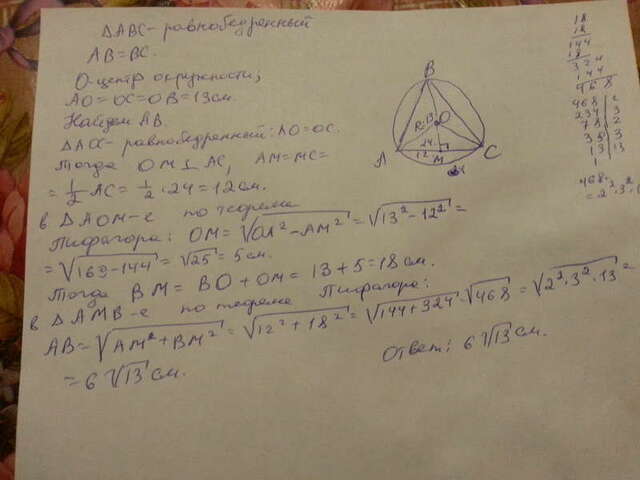 ΔABC - равнобедренный
AB = BC.
O - центр окружности;
AO = OC = OB = 13 см.
Найдем AB.
ΔAOC - равнобедренный: AO = OC.
Тогда OM ⊥ AC, AM = MC =
= 1/2 AC = 1/2 · 24 = 12 см.
в ΔAOM-е по теорема
Пифагора: OM = √(OA² - AM²) = √(13² - 12²) =
= √(169 - 144) = √25 = 5 см.
Тогда BM = BO + OM = 13 + 5 = 18 см.
в ΔAMB-е по теорема Пифагора:
AB = √(AM² + BM²) = √(12² + 18²) = √(144 + 324) = √468 = √(2² · 3² · 13) =
= 6√13 см.
Ответ: 6√13 см.
B
R=13
O
A
24
12
M
C
24
18
18
144
18
324
144
468
468 2
234 2
78 2
39 3
13 13
1
468 =
= 2² · 3² ·